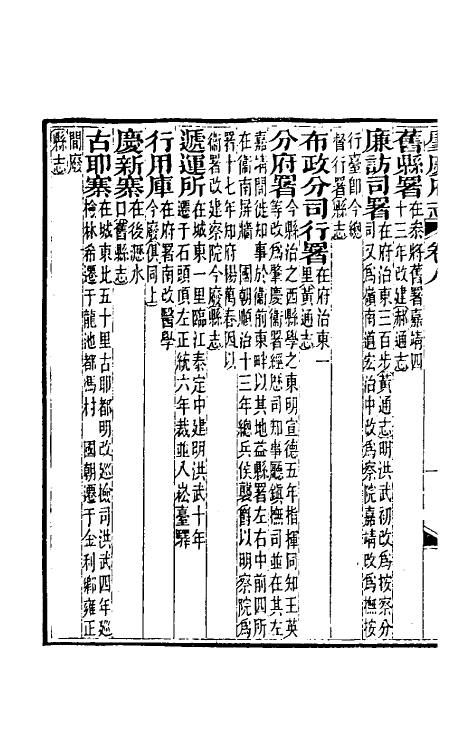 肇慶府志 卷八
舊縣署在叅將舊署嘉靖四十三年改建郝通志
廉訪司署在府治東三百步黃通志明洪武初改爲按察分司又爲嶺南道宏治中改爲察院嘉靖改爲撫按行臺卽今總督行署縣志
布政分司行署在府治東一里黃通志
分府署今縣治之西縣學之東明宣德五年指揮同知王英等改爲肇慶衞署經歷司知事廳鎭撫司並在其左嘉靖間徙知事於衞前東畔以其地益縣署左右中前四所在衞南屏牆 國朝順治十三年總兵侯襲爵以明察院爲署十七年知府楊萬春因以衞署改建察院今廢縣志
遞運所在城東一里臨江泰定中建明洪武十年遷于石頭頂左正統六年裁並入崧臺驛
行用庫在府署南改醫學今廢俱同上
慶新寨在後瀝水口舊縣志
古耶寨在城東北五十里古耶都明改巡檢司洪武四年巡檢林希遷于龍池都馮村 國朝遷于金利鄉雍正間廢縣志